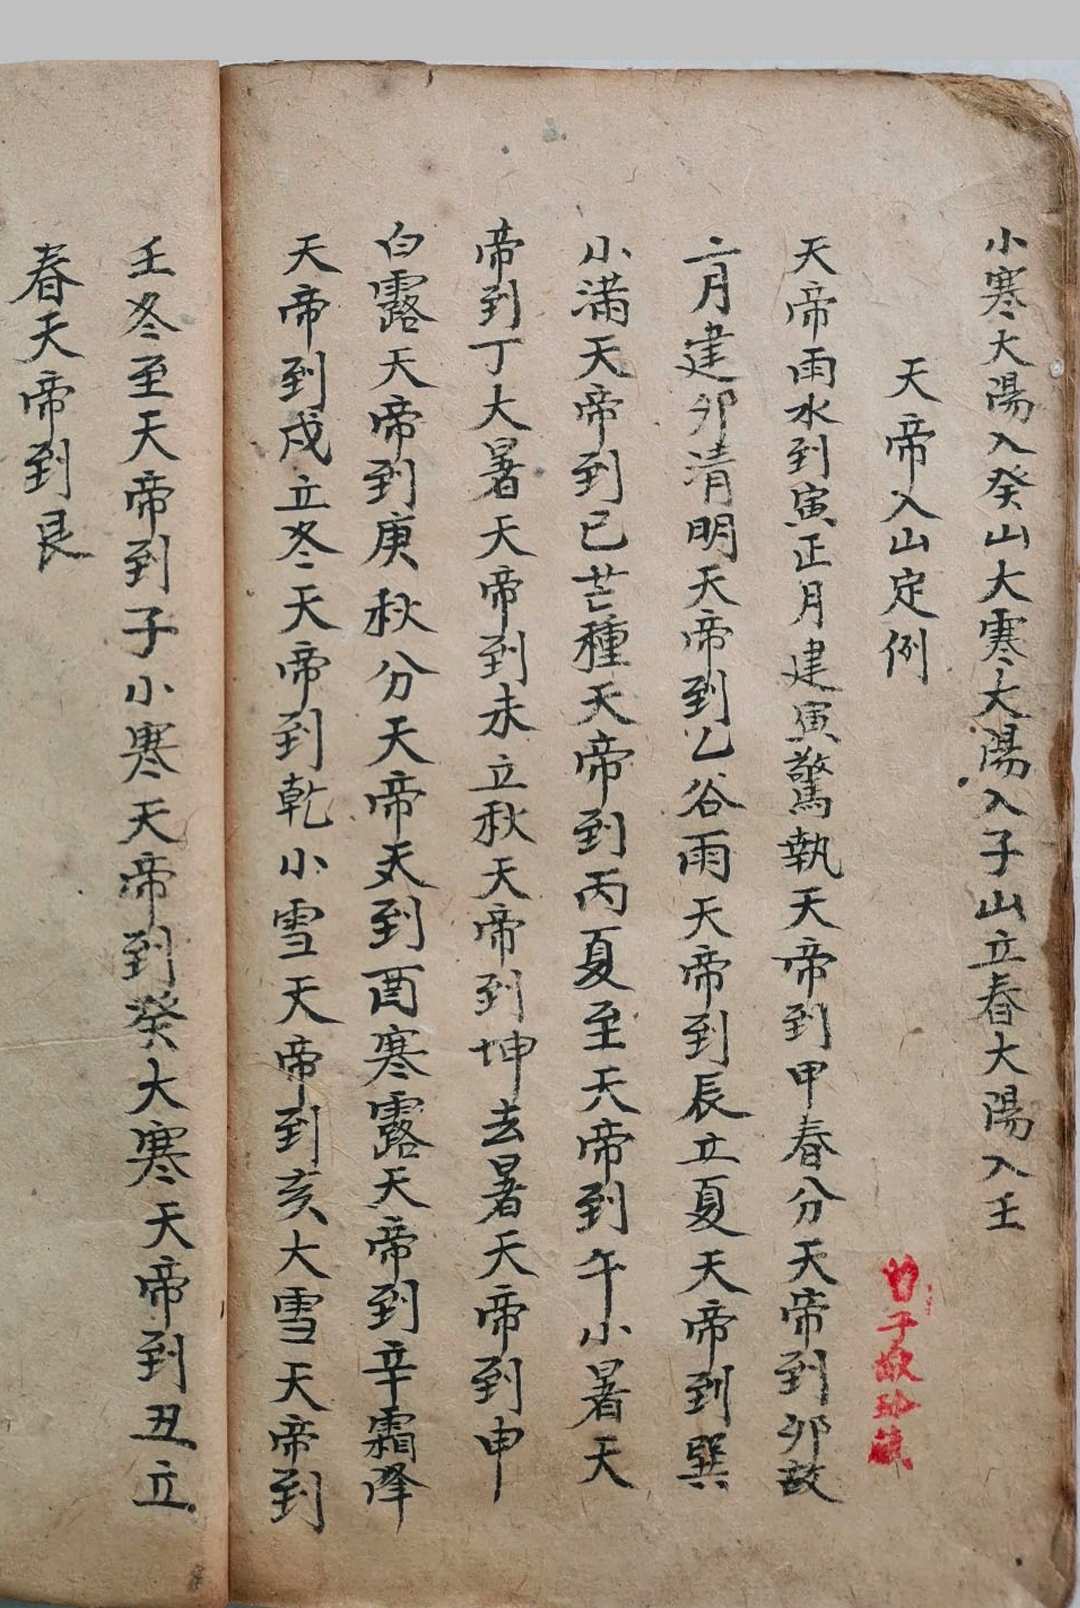 小寒大陽入癸山大寒大陽入子山立春大陽入壬
天帝入山定例
天帝雨水到寅正月建寅驚執天帝到甲春分天帝到卯故
二月建卯清明天帝到乙谷雨天帝到辰立夏天帝到巽
小滿天帝到已芒種天帝到丙夏至天帝到午小暑天
帝到丁大暑天帝到未立秋天帝到坤去暑天帝到申
白露天帝到庚秋分天帝天到酉寒露天帝到辛霜降
天帝到戌立冬天帝到乾小雪天帝到亥大雪天帝到
壬冬至天帝到子小寒天帝到癸大寒天帝到丑立
春天帝到艮
子敬珍藏